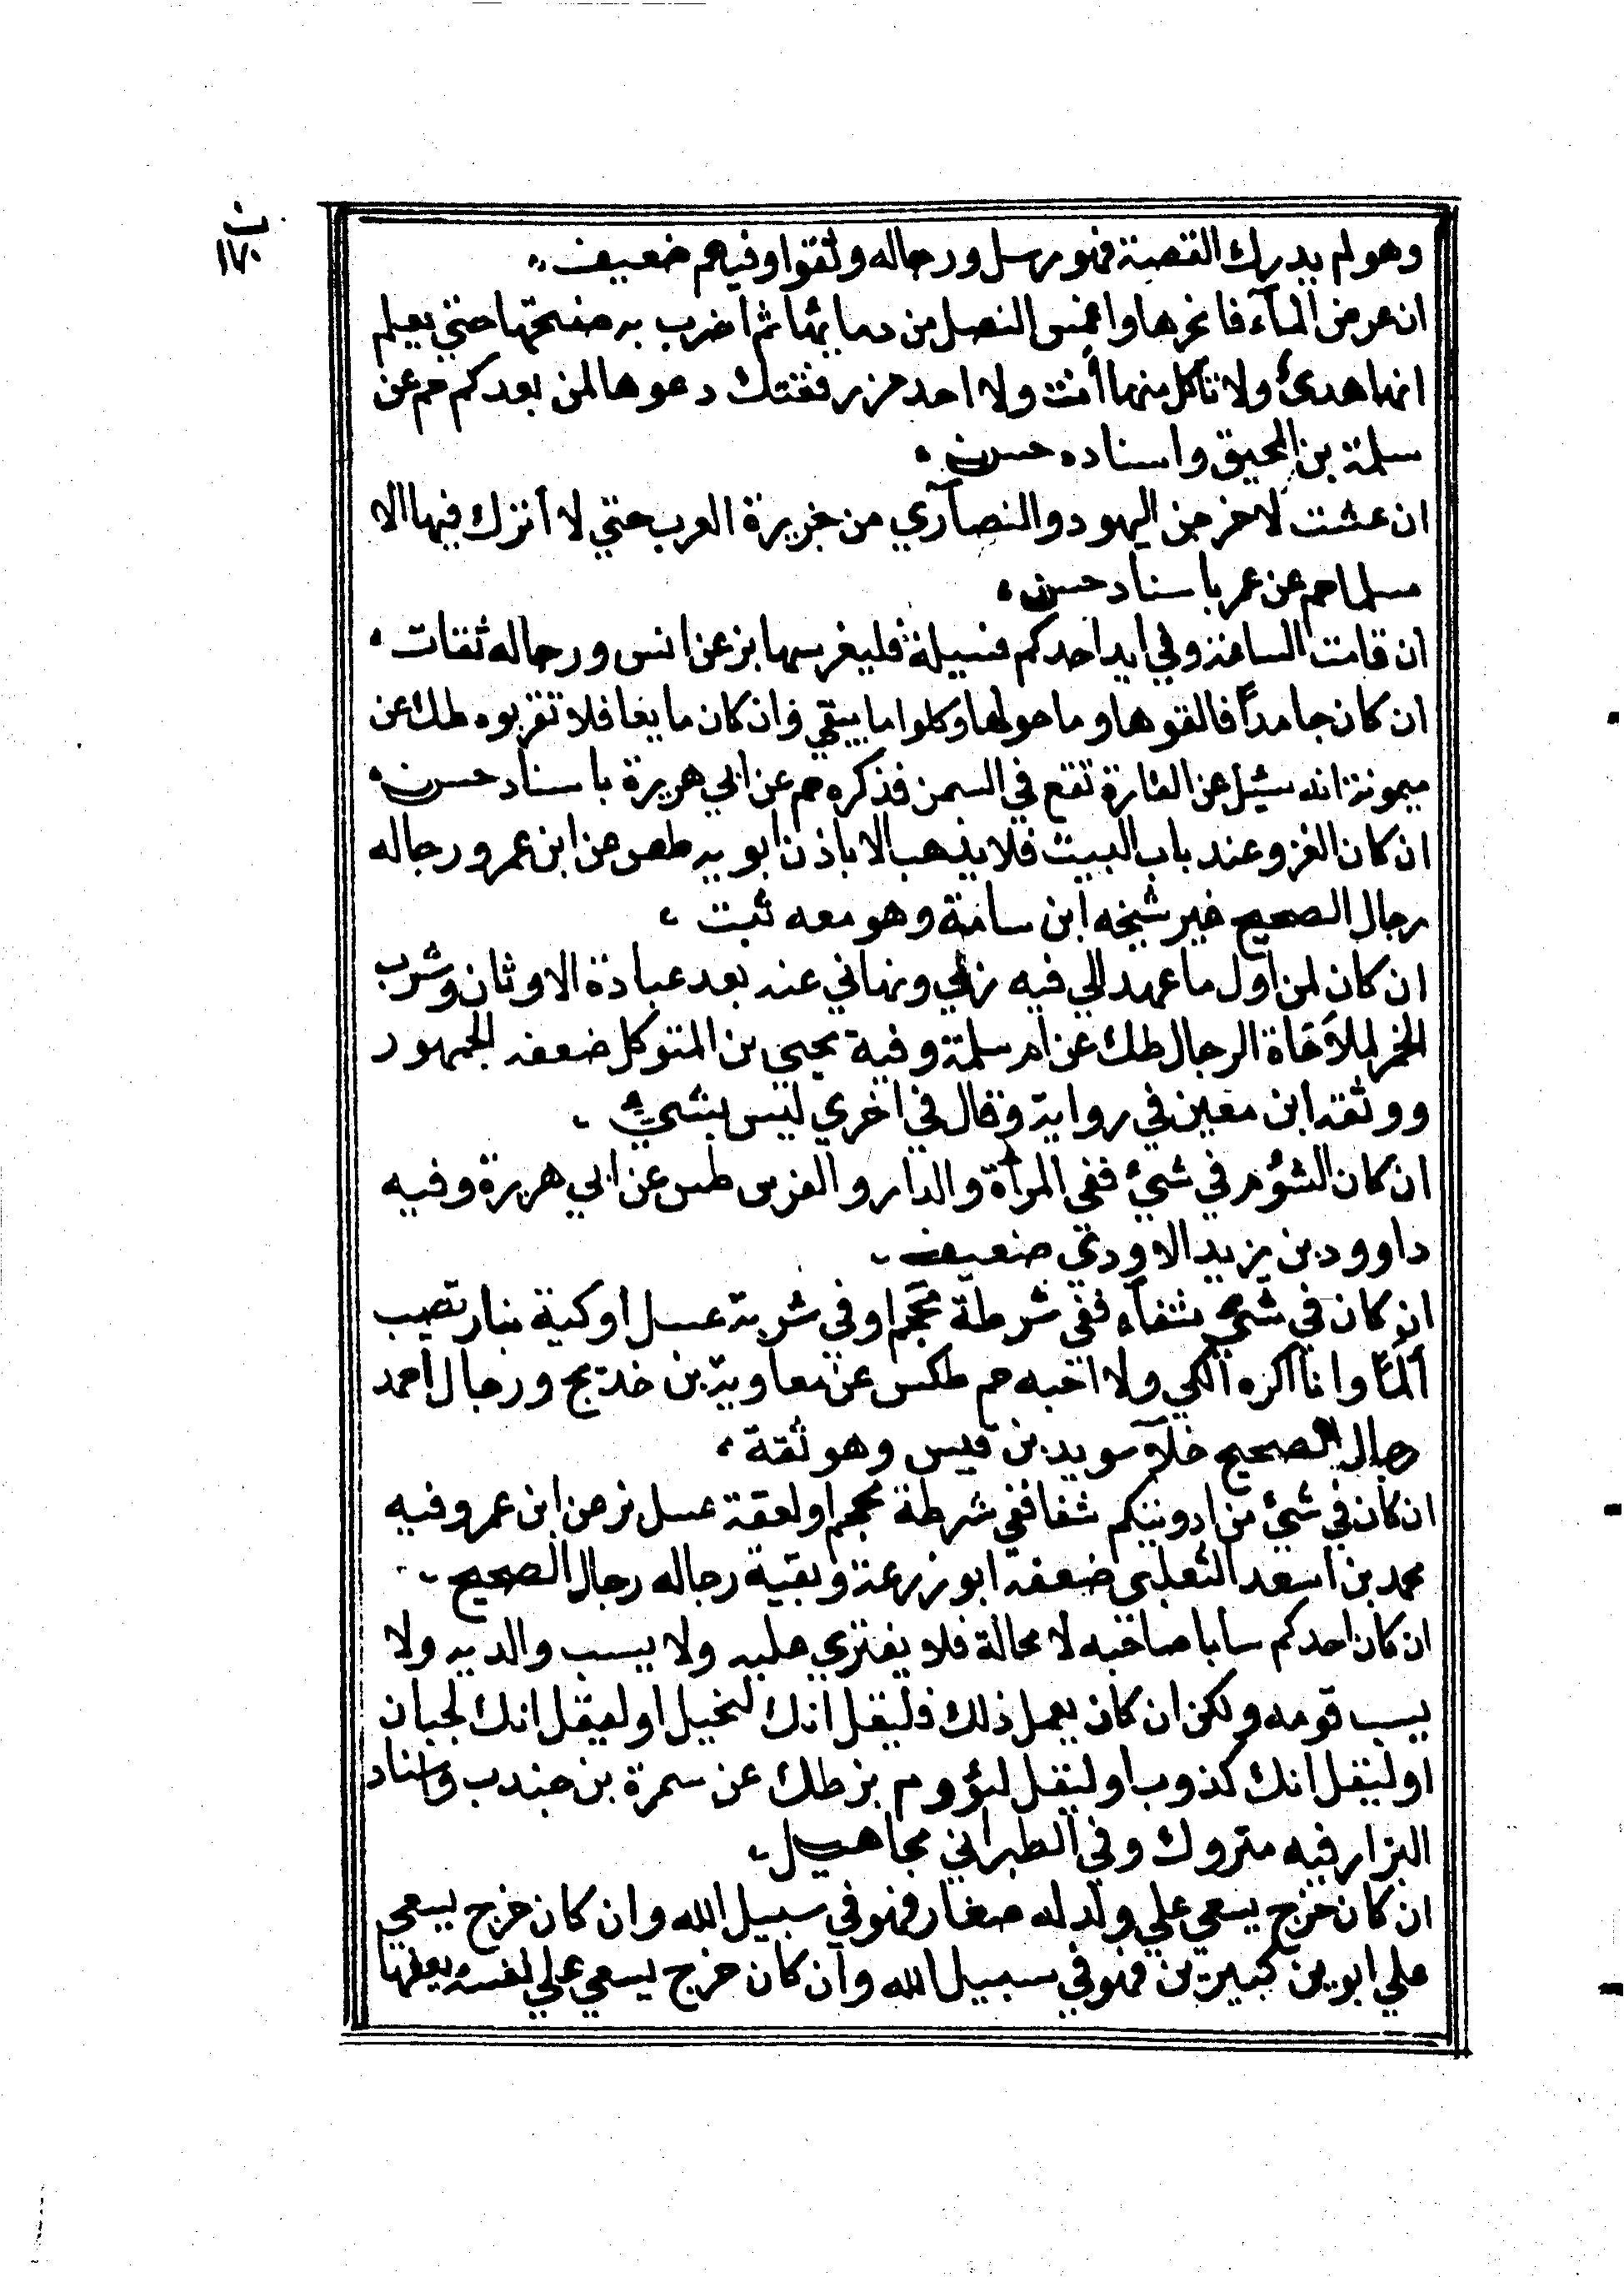 ت
١٧٠
وهو لم يدرك القصة فهو مرسل ورجاله وثقوا وفيهم ضعيف
ان عرض المآء فانحرها واغمس النصل من دمايها ثم اضرب به صفحتها حتي يعلم
انها هدئ ولا تأكل منها أنت ولا احد من رفقتك دعوها لمن بعدكم حم عن
سلمة بن المحبق واسناده حسن
ان عشت لاخرجن اليهود والنصآري من جزيرة العرب حتي لا أترك فيها الا
مسلما حم عن عمر باسناد حسن
ان قامت الساعة وفي ايد احدكم فسيلة فليغرسها بز عن انس ورجاله ثقات
ان كان جامداً فالقوها وما حولها وكلوا ما يبقي وان كان مايعا فلا تقربوه طك عن
ميمونة انه سئيل عن الفارة تقع في السمن فذكره حم عن ابي هريرة باسناد حسن
ان كان الغزو عند باب البيت فلا يذهب الا باذن ابويه طص عن ابن عمر ورجاله
رجال الصحيح غير شيخه ابن سامة وهو معه ثبت
ان كان لمن اول ما عهد الي فيه ربي ونهاني عنه بعد عبادة الاوثان وشرب
الخمر لملاحاة الرجال طك عن ام سلمة وفية يحيي بن المتوكل ضعفه الجمهور
ووثقه ابن معين في رواية وقال في اخري ليس بشيئ
ان كان الشؤم في شيئ ففي المرأة والدار والفرس طس عن ابي هريرة وفيه
داوود بن يزيد الاودي ضعيف
ان كان في شيئ شفآء ففي شرطة محجم او في شربة عسل أو كية بنار تصيب
ألمًا وانا اكره الكي ولا احبه حم طكس عن معاوية بن خديج ورجال احمد
رجال الصحيح خلا سويد بن قيس وهو ثقة
ان كان في شيئ من ادويتكم شفا ففي شرطة محجم او لعقة عسل بز عن ابن عمر وفيه
محمد بن اسعد الثعلبى ضعفه ابو زرعة وبقية رجاله رجال الصحيح
ان كان احدكم سابا صاحبه لا محالة فلا يفتري عليه ولا يسب والديه ولا
يسب قومه ولكن ان كان يعمل ذلك فليقل انك لبخيل او ليقل انك لجبان
او ليقل انك كذوب او ليقل لنؤوم بز طك عن سمرة بن جندب واسناد
البزار فيه متروك وفي الطبراني مجاهيل
ان كان خرج يسعي علي ولد له صغار فهو في سبيل الله وان كان خرج يسعي
علي ابوين كبيرين فهو في سبيل الله وان كان خرج يسعي علي نفسه يعفها